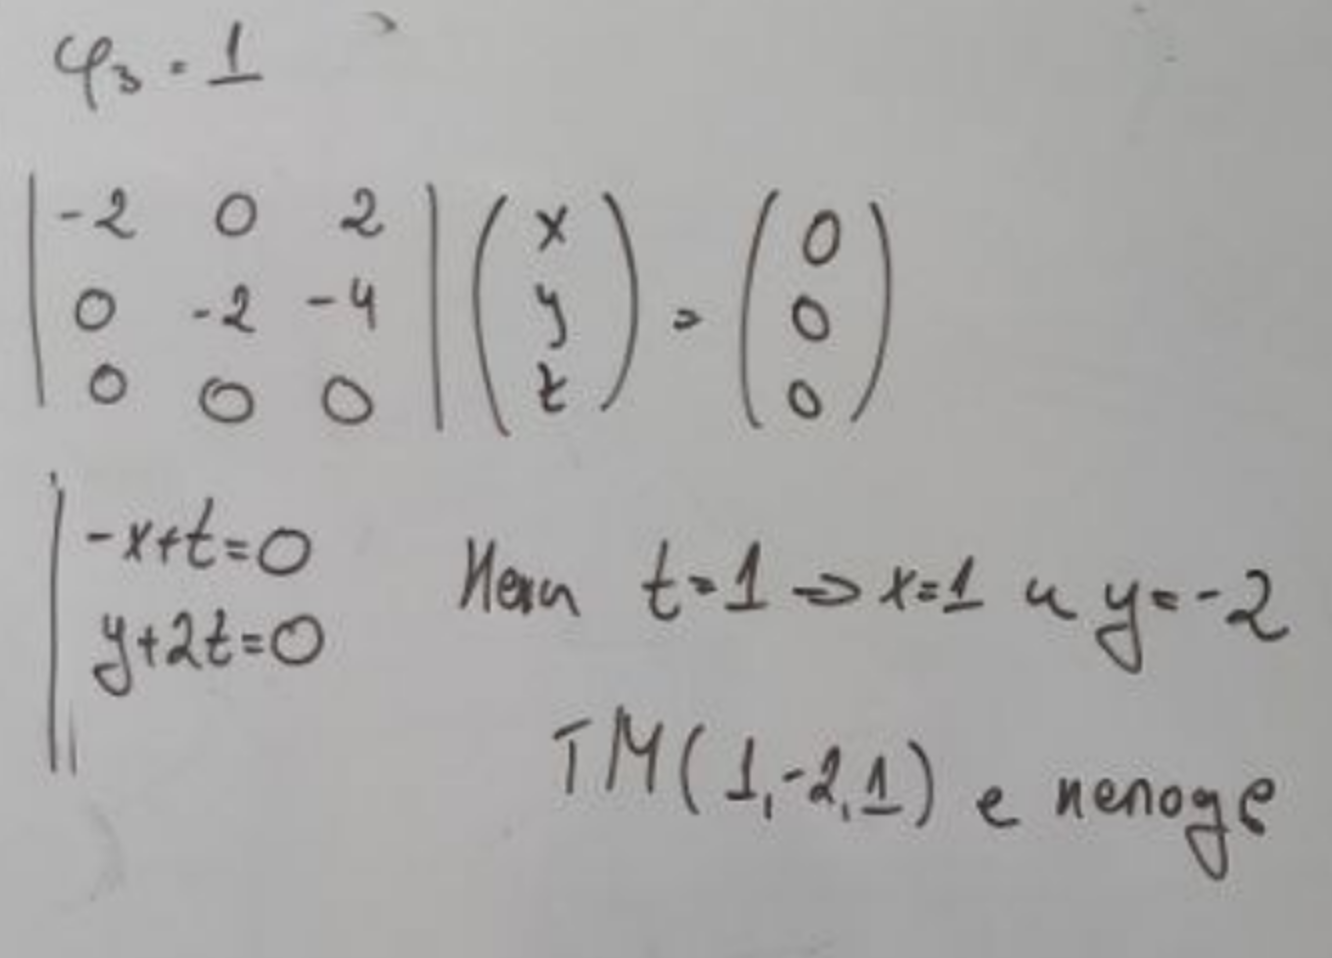 φ₃ = 1
| -2 0 2 | ( x ) = ( 0 )
| 0 -2 -4 | ( y ) ( 0 )
| 0 0 0 | ( t ) ( 0 )
| -x+t=0
| y+2t=0
Нека t=1 => x=1 и y=-2
TM(1,-2,1) е неподв